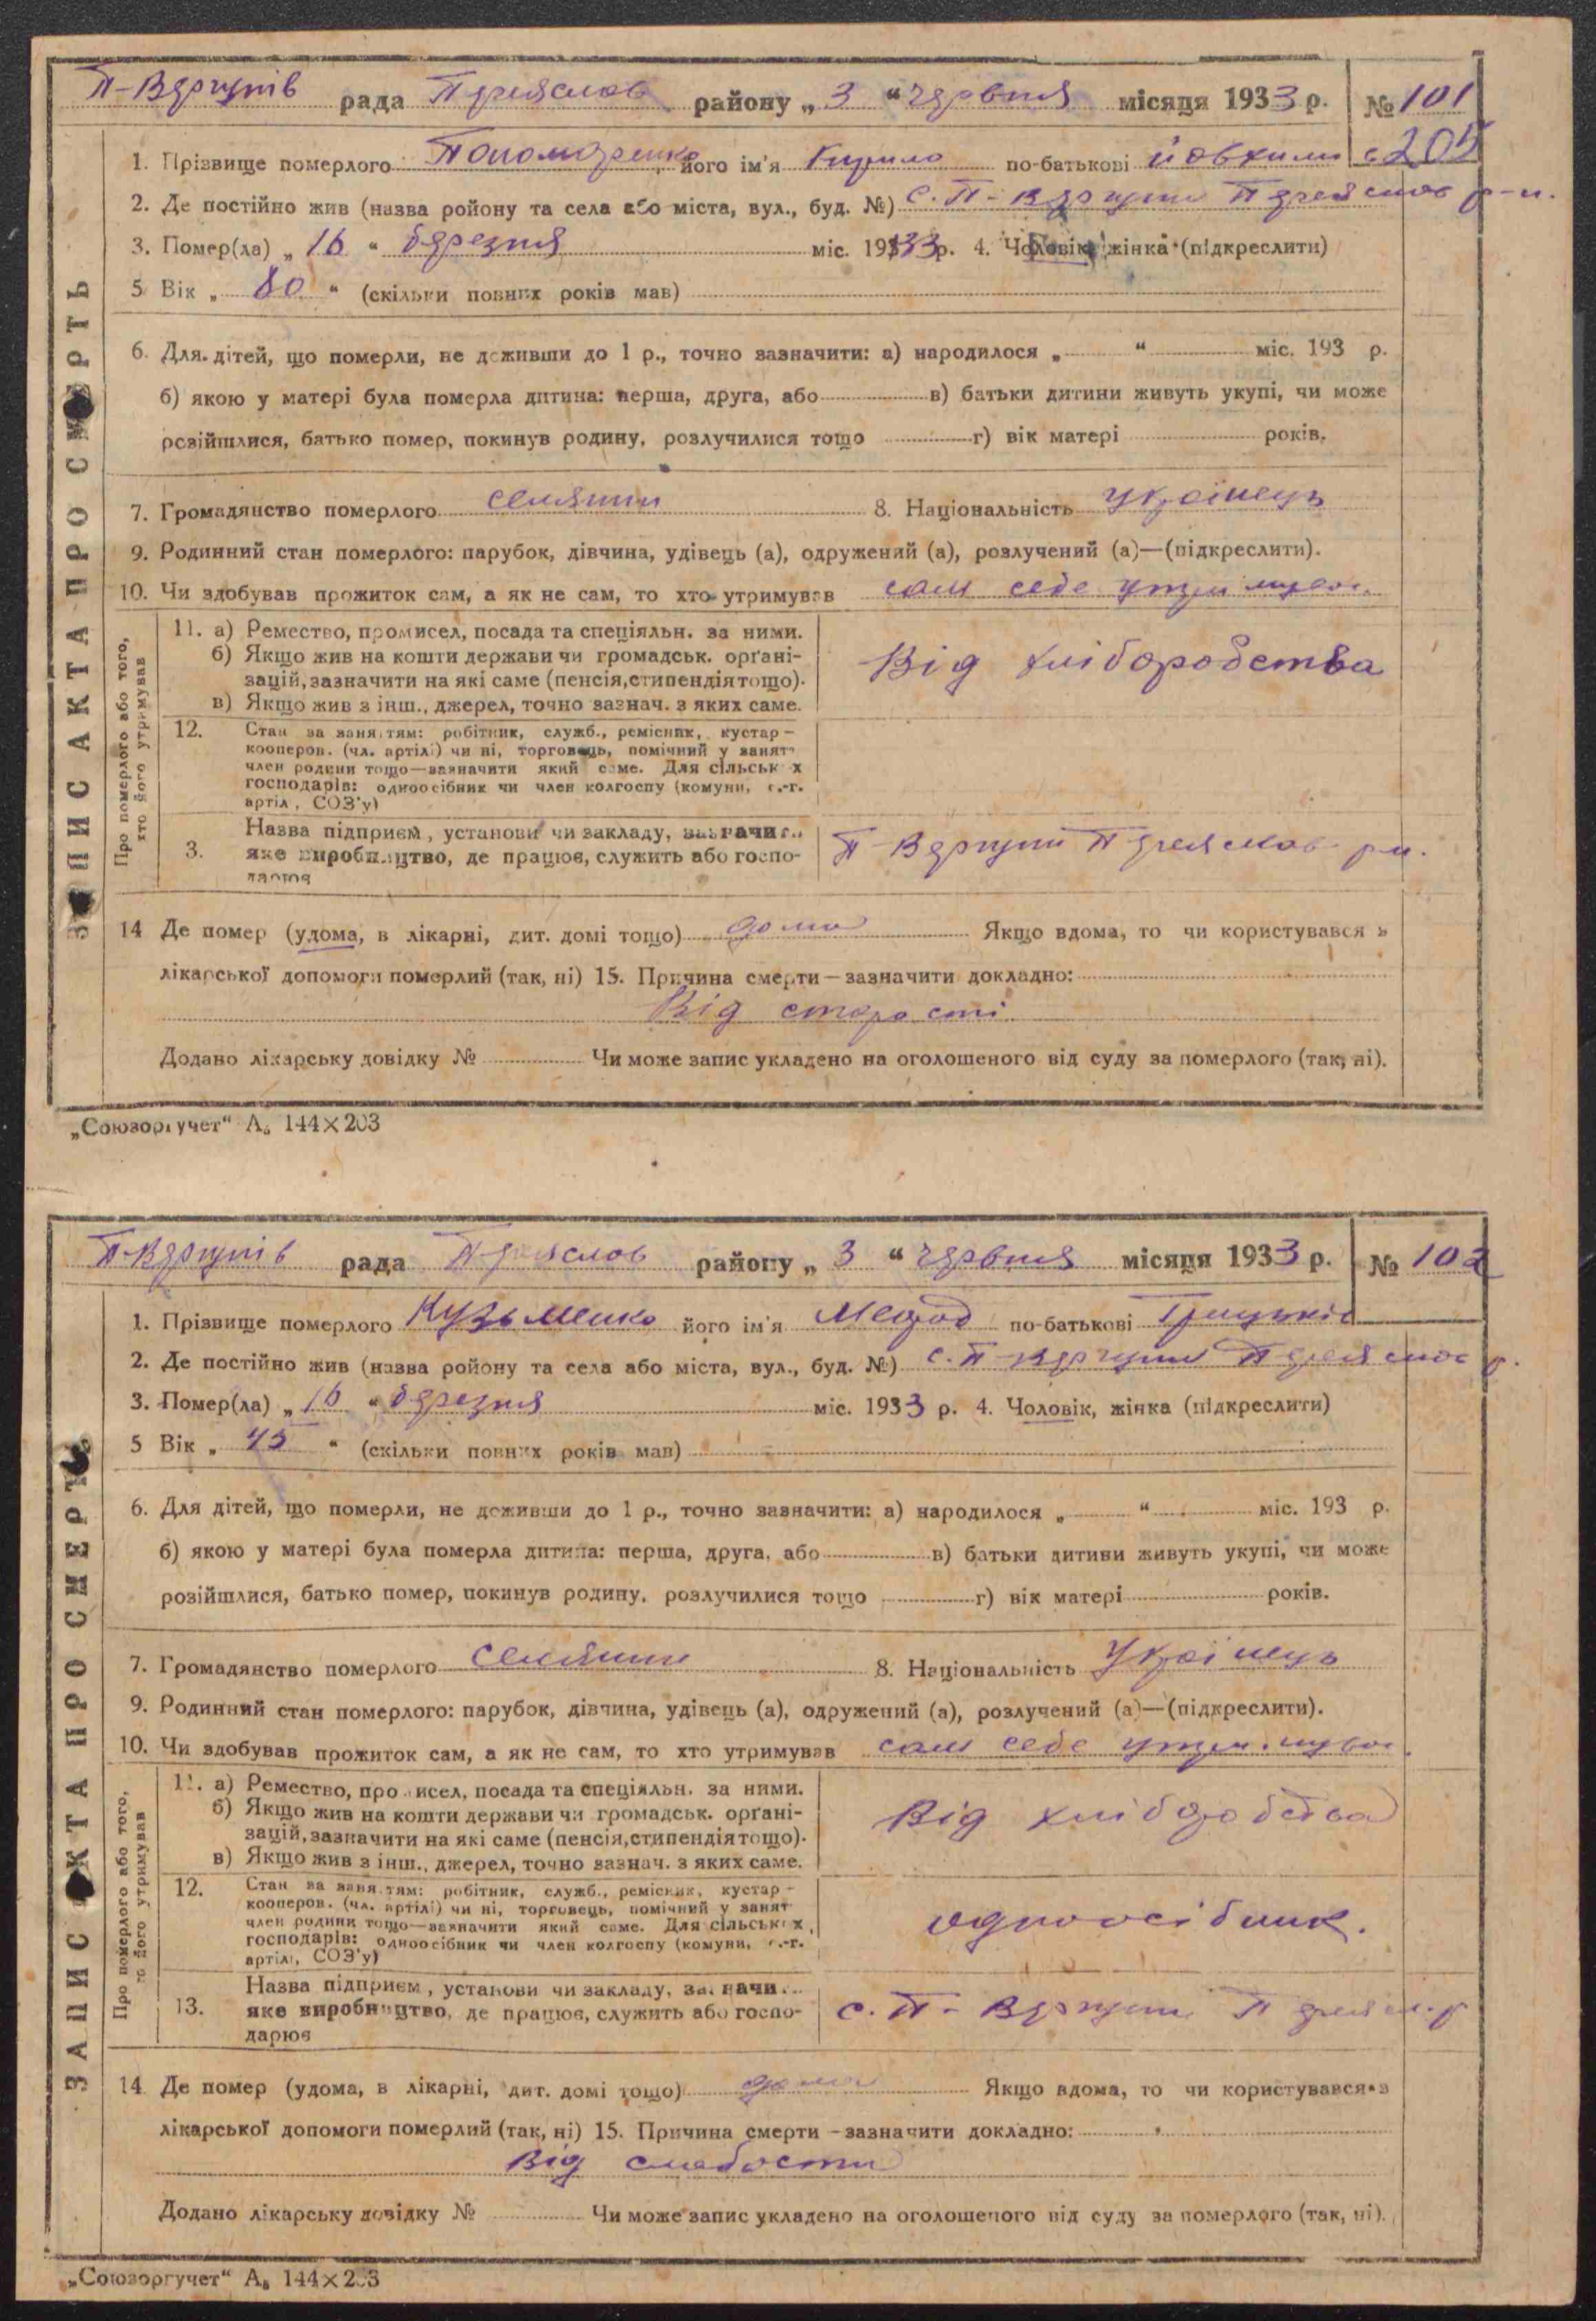 П-Вергунів рада Переяслов району „ 3 “ червня місяця 1933 р. № 101
1. Прізвище померлого Пономаренко, його ім'я Кирило по-батькові 205
2. Де постійно жив (назва ройону та села або міста, вул., буд. №) с. П-Вергуни Переяслов р-н.
3. Помер(ла) „ 16 “ березня міс. 1933 р. 4. Чоловік, жінка (підкреслити)
5 Вік „ 80 “ (скільки повних років мав)
6. Для дітей, що померли, не доживши до 1 р., точно зазначити: а) народилося „ “ міс. 193 р.
б) якою у матері була померла дитина: перша, друга, або в) батьки дитини живуть укупі, чи може
розійшлися, батько помер, покинув родину, розлучилися тощо г) вік матері років.
7. Громадянство померлого селянин 8. Національність Українець
9. Родинний стан померлого: парубок, дівчина, удівець (а), одружений (а), розлучений (а)—(підкреслити).
10. Чи здобував прожиток сам, а як не сам, то хто утримував сам себе
ЗАПИС АКТА ПРО СМЕРТЬ
Про померлого або того, хто його утримував
11. а) Ремество, промисел, посада та спеціяльн. за ними.
б) Якщо жив на кошти держави чи громадськ. орґані-
зацій, зазначити на які саме (пенсія, стипендія тощо).
в) Якщо жив з інш., джерел, точно зазнач. з яких саме.
Від хліборобства
12. Стан за занятям: робітник, служб., ремісник, кустар –
кооперов. (чл. артілі) чи ні, торговець, помічний у занят
член родини тощо—зазначити який саме. Для сільськ х
господарів: одноосібник чи член колгоспу (комуни, с.-г.
артіл, СОЗ'у)
Назва підприєм, установи чи закладу, зазначити
3. яке виробництво, де працює, служить або госпо-
дарює
П-Вергуни Переяслов р-н.
14 Де помер (удома, в лікарні, дит. домі тощо) дома Якщо вдома, то чи користувався з
лікарської допомоги померлий (так, ні) 15. Причина смерти — зазначити докладно:
Від старості
Додано лікарську довідку № Чи може запис укладено на оголошеного від суду за померлого (так, ні).
„Союзоргучет“ А₅ 144×203
П-Вергунів рада Переяслов району „ 3 “ червня місяця 1933 р. № 102
1. Прізвище померлого Кузьменко його ім'я по-батькові Грицьків
2. Де постійно жив (назва ройону та села або міста, вул., буд. №) с. П-Вергуни Переяслов р.
3. Помер(ла) „ 16 “ березня міс. 1933 р. 4. Чоловік, жінка (підкреслити)
5 Вік „ 45 “ (скільки повних років мав)
6. Для дітей, що померли, не доживши до 1 р., точно зазначити: а) народилося „ “ міс. 193 р.
б) якою у матері була померла дитина: перша, друга, або в) батьки дитини живуть укупі, чи може
розійшлися, батько помер, покинув родину, розлучилися тощо г) вік матері років.
7. Громадянство померлого селянин 8. Національність Українець
9. Родинний стан померлого: парубок, дівчина, удівець (а), одружений (а), розлучений (а)—(підкреслити).
10. Чи здобував прожиток сам, а як не сам, то хто утримував сам себе
ЗАПИС АКТА ПРО СМЕРТЬ
Про померлого або того, хто його утримував
11. а) Ремество, промисел, посада та спеціяльн. за ними.
б) Якщо жив на кошти держави чи громадськ. орґані-
зацій, зазначити на які саме (пенсія, стипендія тощо).
в) Якщо жив з інш., джерел, точно зазнач. з яких саме.
Від хліборобства
12. Стан за занятям: робітник, служб., ремісник, кустар –
кооперов. (чл. артілі) чи ні, торговець, помічний у занят
член родини тощо—зазначити який саме. Для сільськ х
господарів: одноосібник чи член колгоспу (комуни, с.-г.
артілі, СОЗ'у)
одноосібник.
Назва підприєм, установи чи закладу, зазначи
13. яке виробництво, де працює, служить або госпо-
дарює
с. П-Вергуни Переясл. р
14 Де помер (удома, в лікарні, дит. домі тощо) дома Якщо вдома, то чи користувався з
лікарської допомоги померлий (так, ні) 15. Причина смерти – зазначити докладно:
Від слабости
Додано лікарську довідку № Чи може запис укладено на оголошеного від суду за померлого (так, ні).
„Союзоргучет“ А₅ 144×203